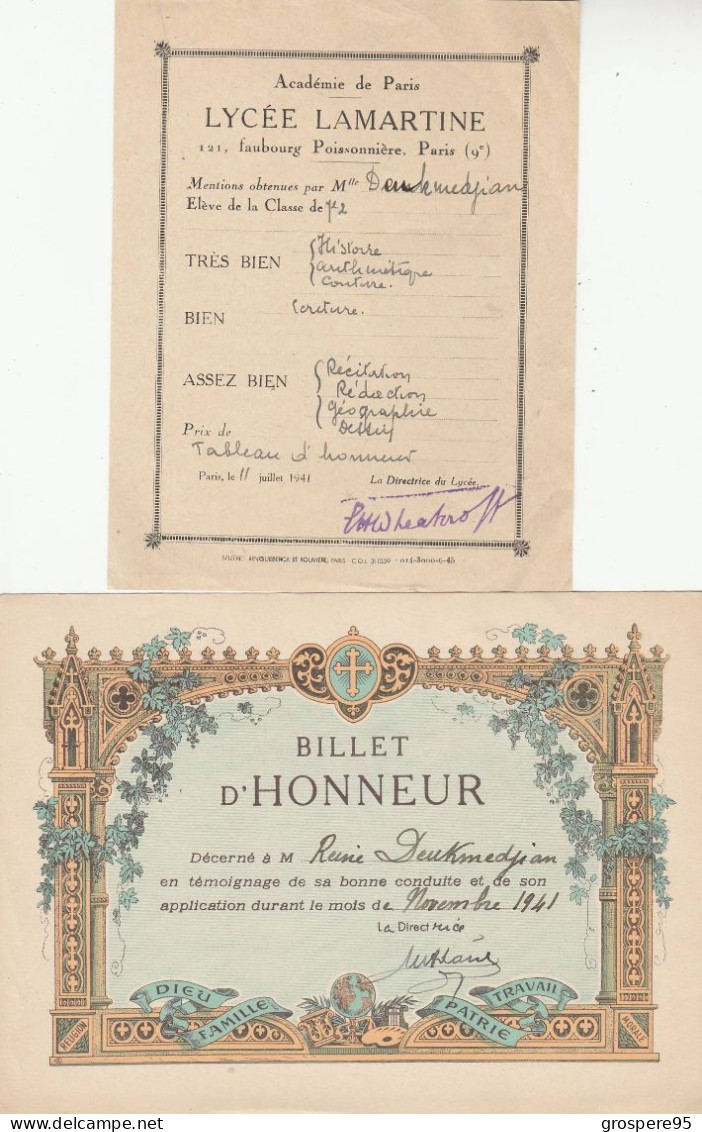 Académie de Paris
LYCÉE LAMARTINE
121, faubourg Poissonnière, Paris (9e)
Mentions obtenues par Mlle Deukmedjian
Elève de la Classe de 7e2
TRÈS BIEN
Histoire
arithmétique
Couture.
BIEN
Ecriture.
ASSEZ BIEN
Récitation
Rédaction
géographie
Dessin
Prix de
Tableau d'honneur
Paris, le 11 juillet 1941
La Directrice du Lycée,
ET ROUVIÈRE, PARIS - C.O.L 31.1539 - 014-3000-6-45
BILLET
D'HONNEUR
Décerné à M Reine Deukmedjian
en témoignage de sa bonne conduite et de son
application durant le mois de Novembre 1941
la Directrice
DIEU
FAMILLE
TRAVAIL
PATRIE
RELIGION
MORALE
© delcampe.net
grospere95